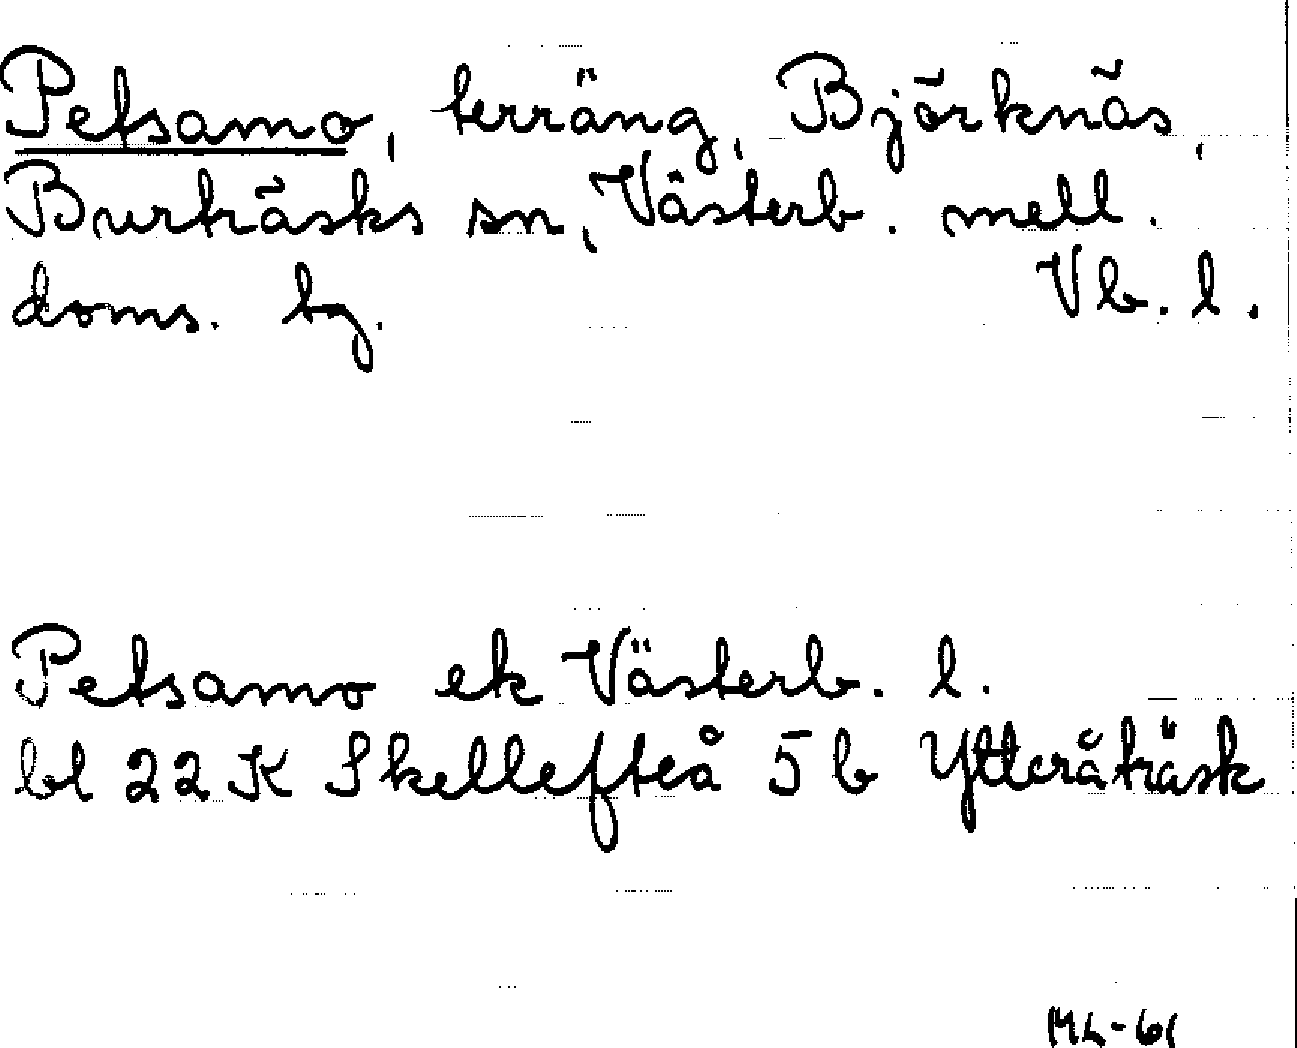 Petsamo, terräng, Björknäs,
Burträsks sn, Västerb. mell.
doms. bg. Vb. l.
Petsamo ek Västerb. l.
bl 22 K Skellefteå 5 b Ytteråträsk
ML-61